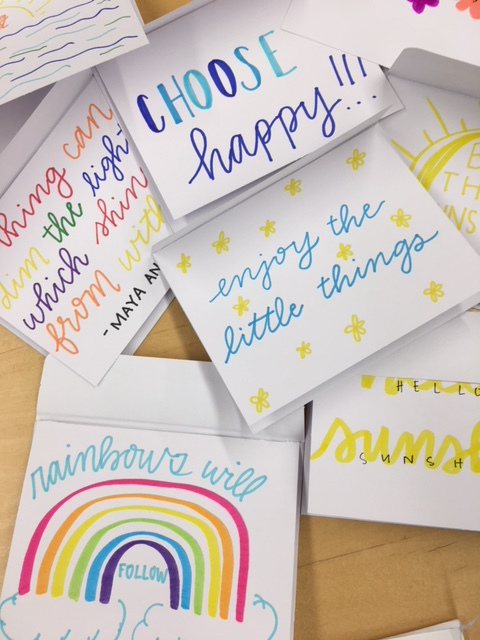 CHOOSE
happy!!!...
thing can
dim the light
which shin
from with
- MAYA AN
enjoy the
little things
rainbows will
FOLLOW
HELLO
SUNSH